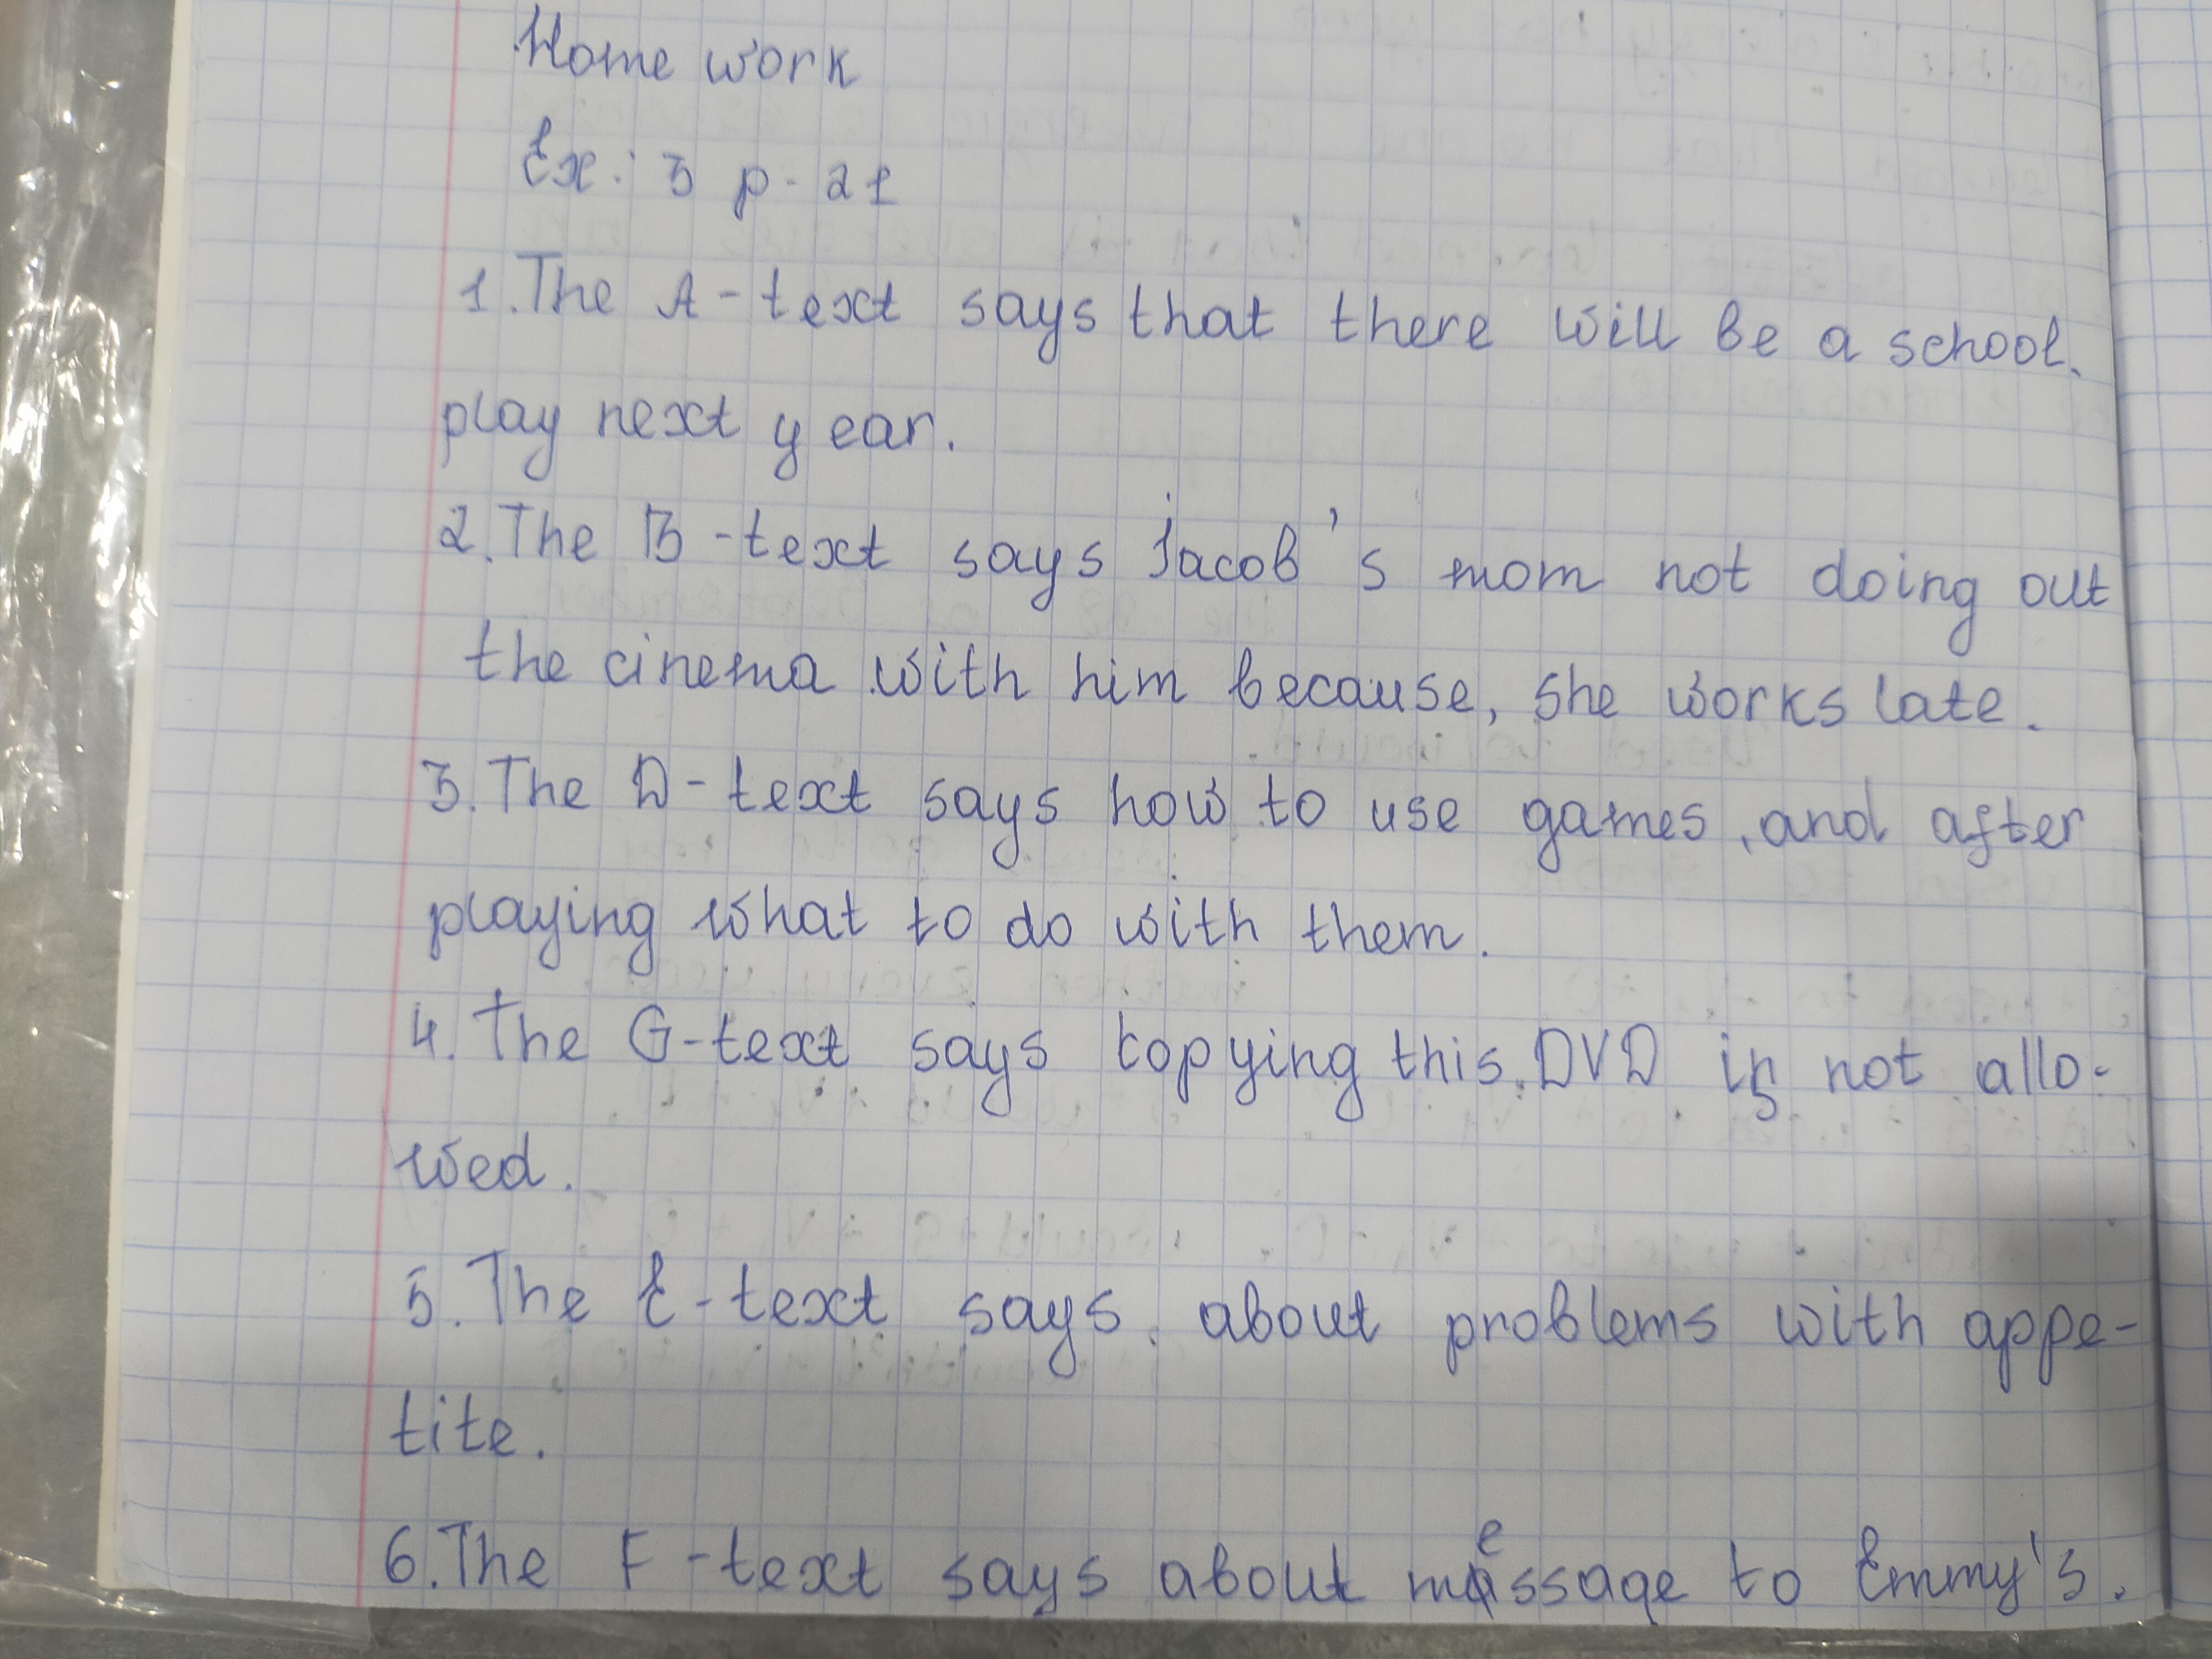 Home work
Ex: 3 p. 21
1. The A-text says that there will be a school
play next year.
2. The B-text says Jacob's mom not doing out
the cinema with him because, she works late.
3. The D-text says how to use games, and after
playing what to do with them.
4. The G-text says copying this DVD is not allo-
wed.
5. The E-text says about problems with appe-
tite.
6. The F-text says about message to Emmy's.